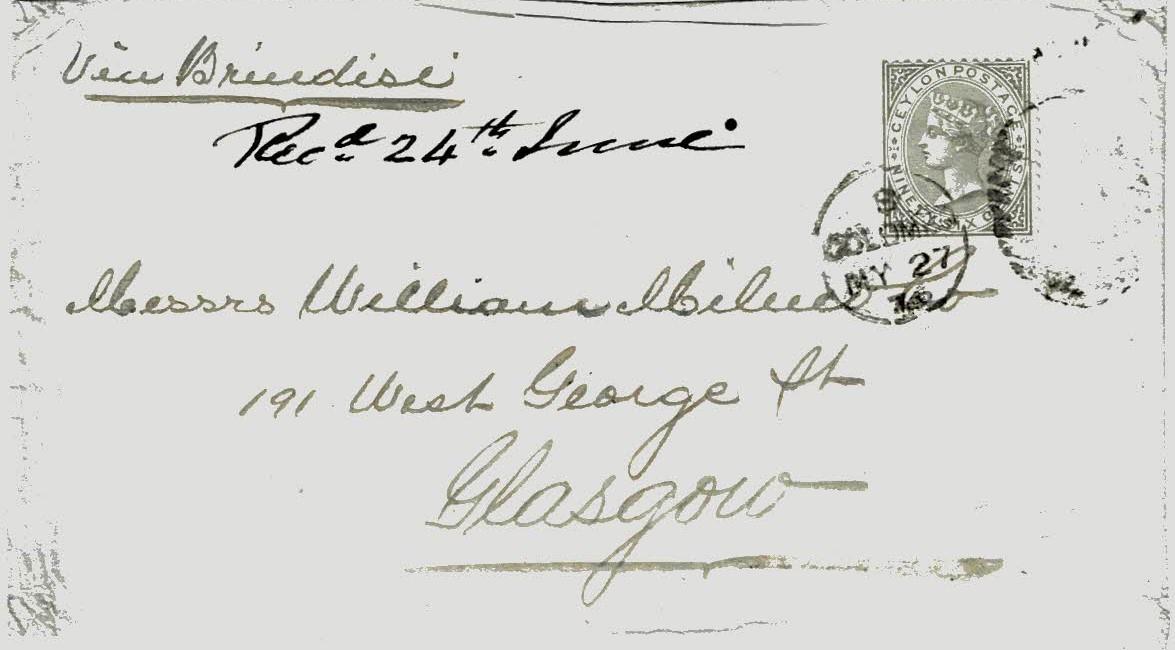 Via Brindisi
Recd 24th June
CEYLON POSTAGE
NINETY SIX CENTS
MY 27
Messrs William Milne & Co
191 West George St
Glasgow